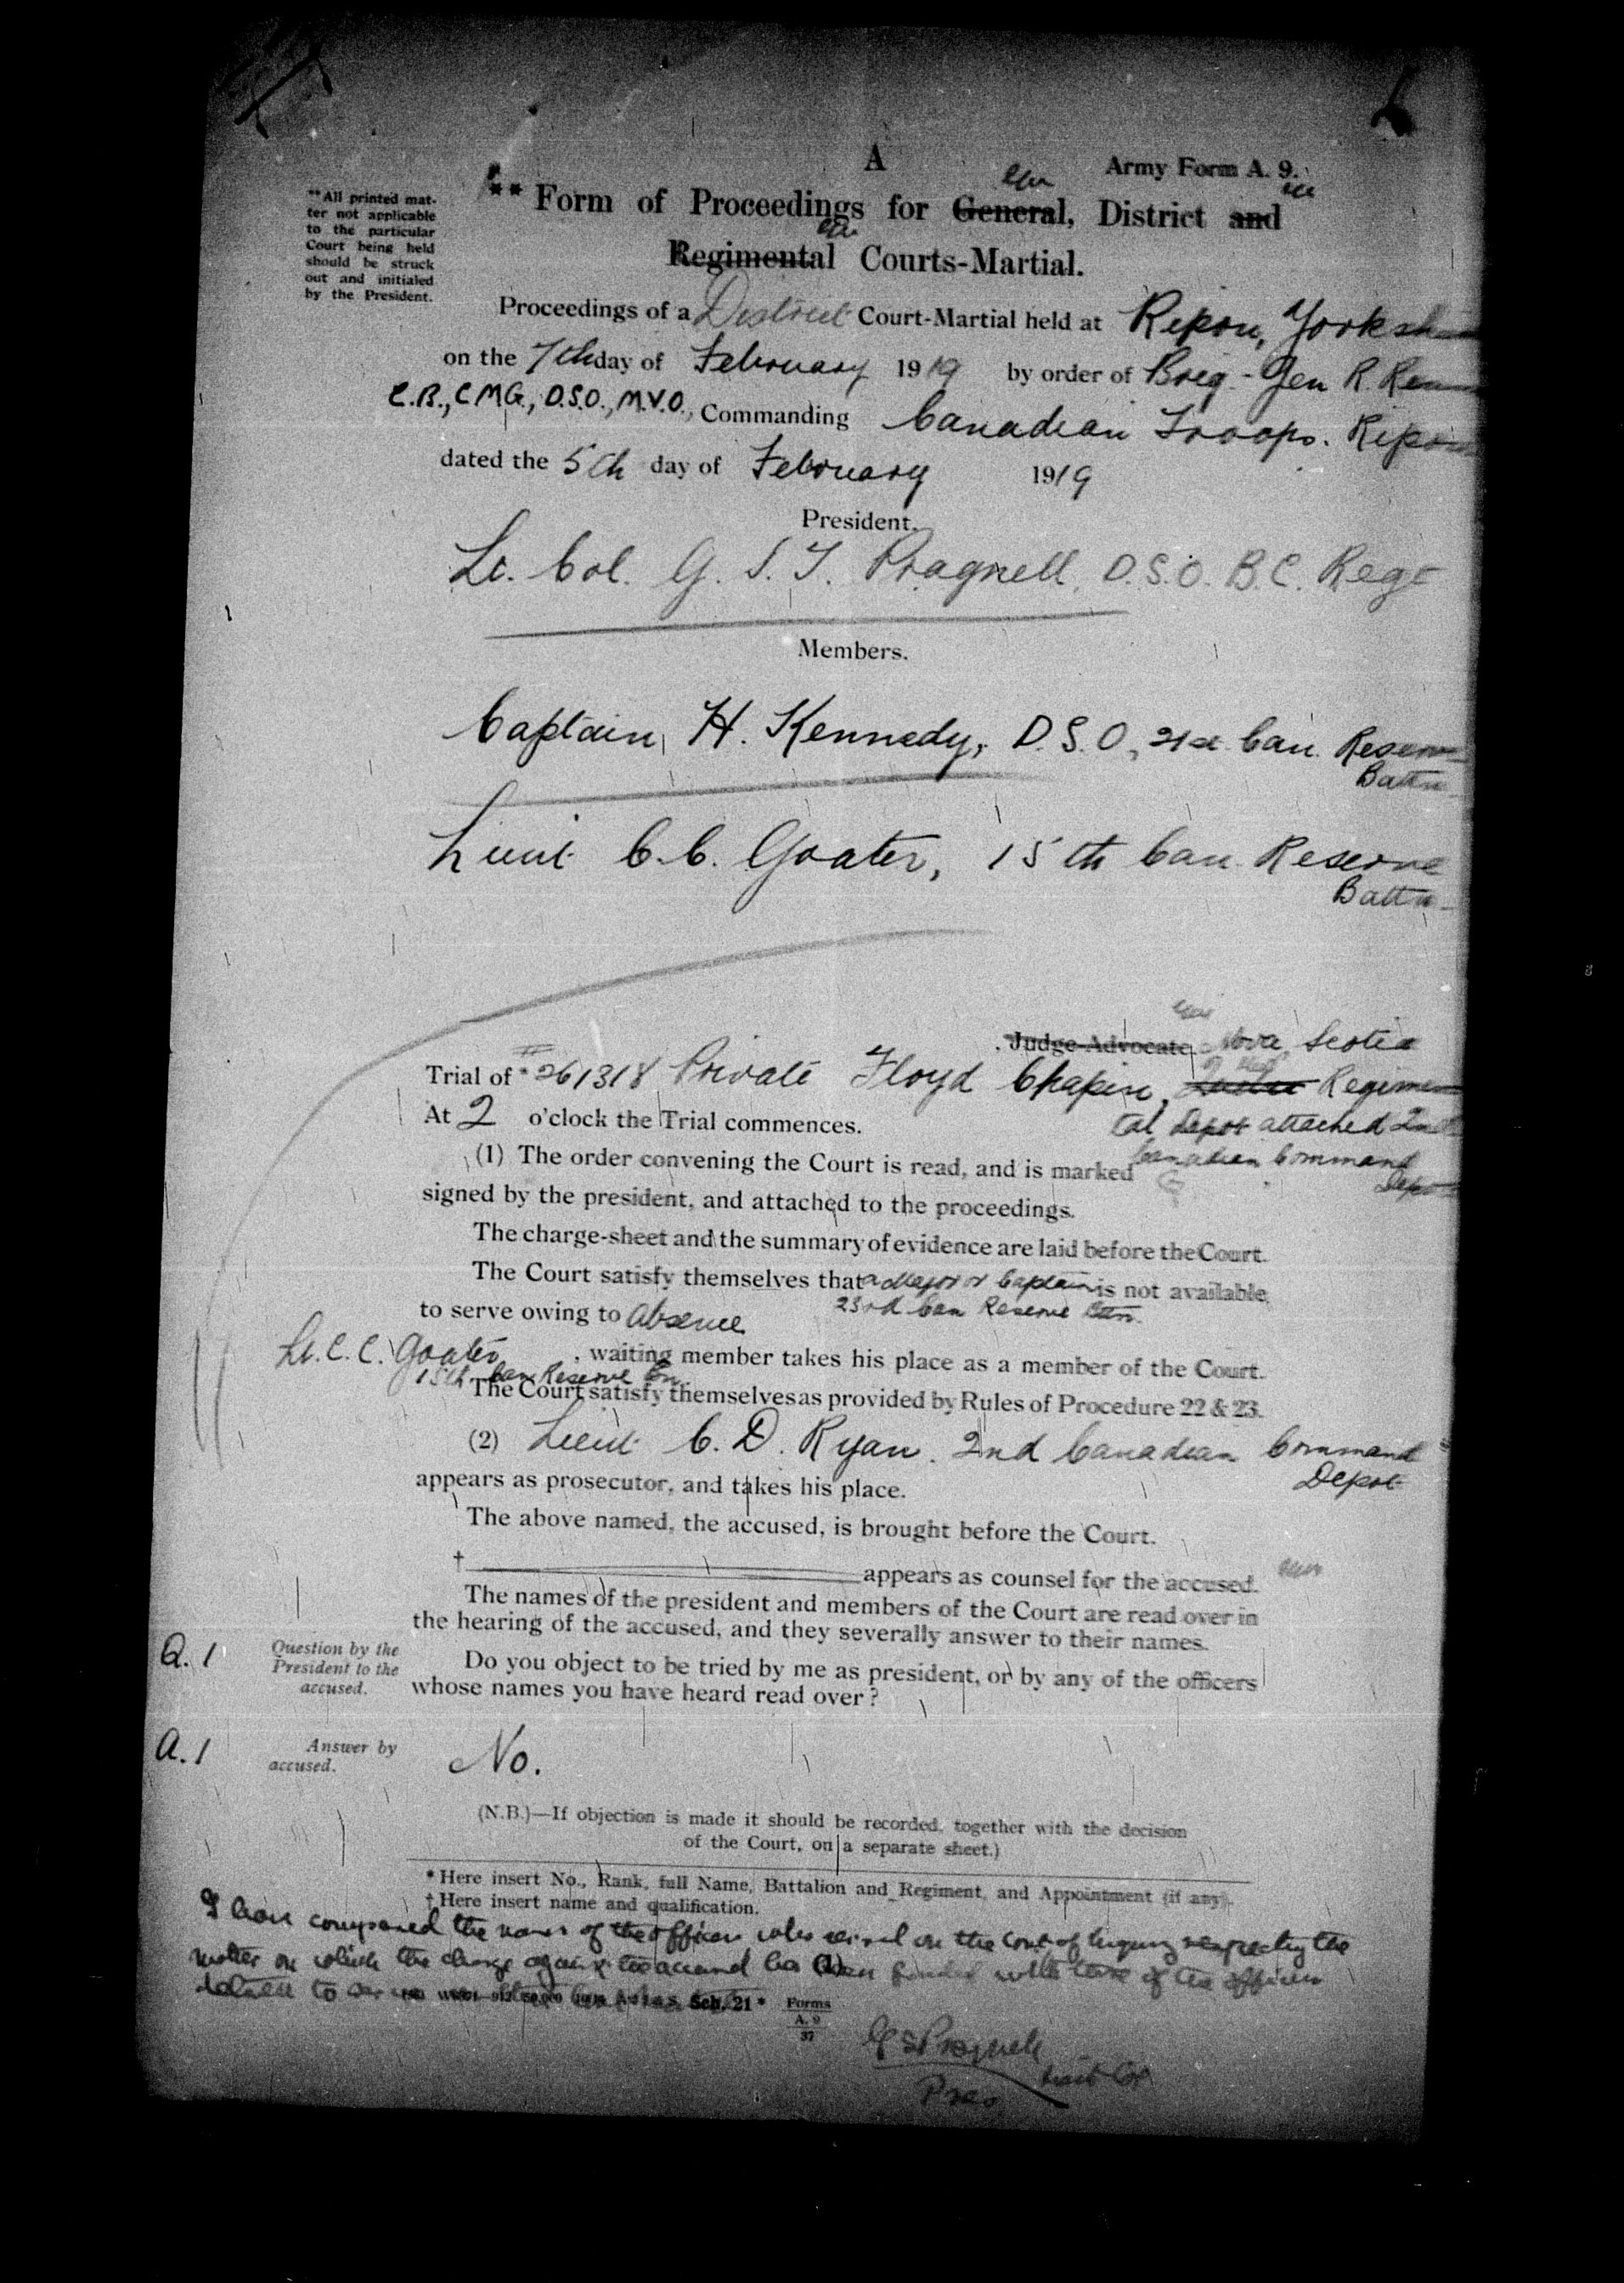 A
Army Form A. 9.
** All printed mat-
ter not applicable
to the particular
Court being held
should be struck
out and initialed
by the President.
** Form of Proceedings for General, District and
Regimental Courts-Martial.
Proceedings of a District Court-Martial held at Ripon, Yorksh
on the 7th day of February 1919 by order of Brig-Gen R.
C.B., C.M.G., D.S.O., M.V.O., Commanding Canadian Troops. Ripon
dated the 5th day of February 1919
President.
Lt. Col. G. S. T. Pragnell, D.S.O. B.C. Regt
Members.
Captain H. Kennedy, D.S.O, 21st Can. Reserve
Battn
Lieut C. C. Goater, 15th Can Reserve
Battn
Judge-Advocate. Nova Scotia
Trial of * # 261318 Private Floyd Chapin, Regimen
At 2 o'clock the Trial commences. tal Depot attached 2nd
Canadian Command
Depot
(1) The order convening the Court is read, and is marked
signed by the president, and attached to the proceedings.
The charge-sheet and the summary of evidence are laid before the Court.
The Court satisfy themselves that a Major or Captain is not available
23rd Can Reserve Bttn.
to serve owing to absence
Lt. C. C. Goater, waiting member takes his place as a member of the Court.
15th Can Reserve Bn.
The Court satisfy themselves as provided by Rules of Procedure 22 & 23.
(2) Lieut C. D. Ryan. 2nd Canadian Command
Depot
appears as prosecutor, and takes his place.
The above named, the accused, is brought before the Court.
† appears as counsel for the accused.
The names of the president and members of the Court are read over in
the hearing of the accused, and they severally answer to their names.
Q. 1
Question by the
President to the
accused.
Do you object to be tried by me as president, or by any of the officers
whose names you have heard read over ?
A. 1
Answer by
accused.
No.
(N.B.)—If objection is made it should be recorded, together with the decision
of the Court, on a separate sheet.)
* Here insert No., Rank, full Name, Battalion and Regiment, and Appointment (if any).
† Here insert name and qualification.
I have compared the names of the officers who served on the Court of Inquiry respecting the
matter on which the charge against the accused has been founded with those of the officers
detailed to
Sch. 21*
Forms
A. 9
37
G S Pragnell
Lieut Col
Pres